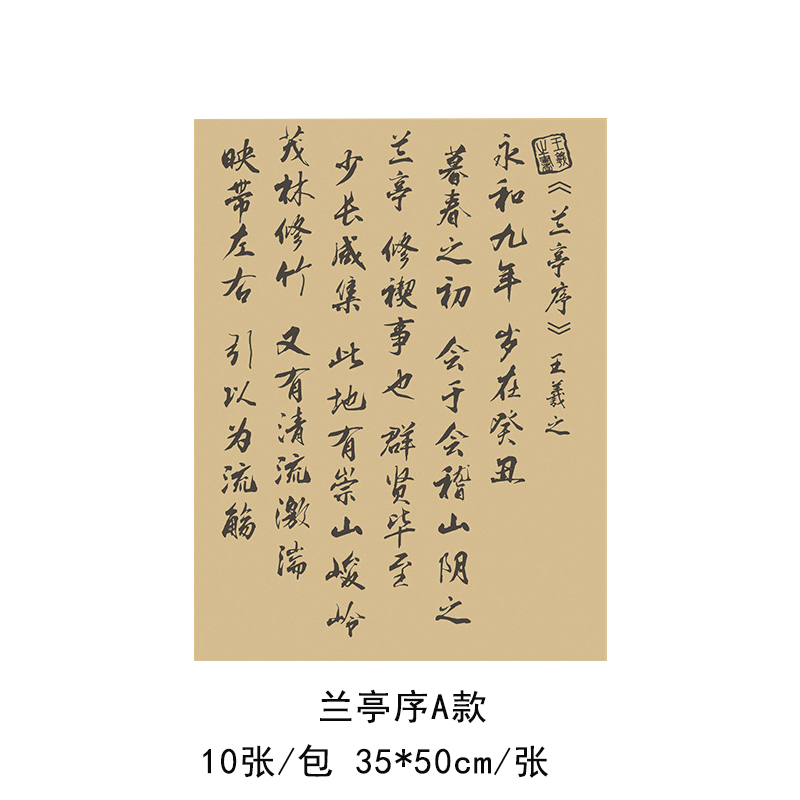 王羲之書
《兰亭序》王羲之
永和九年 岁在癸丑
暮春之初 会于会稽山阴之
兰亭 修禊事也 群贤毕至
少长咸集 此地有崇山峻岭
茂林修竹 又有清流激湍
映带左右 引以为流觞
兰亭序A款
10张/包 35*50cm/张